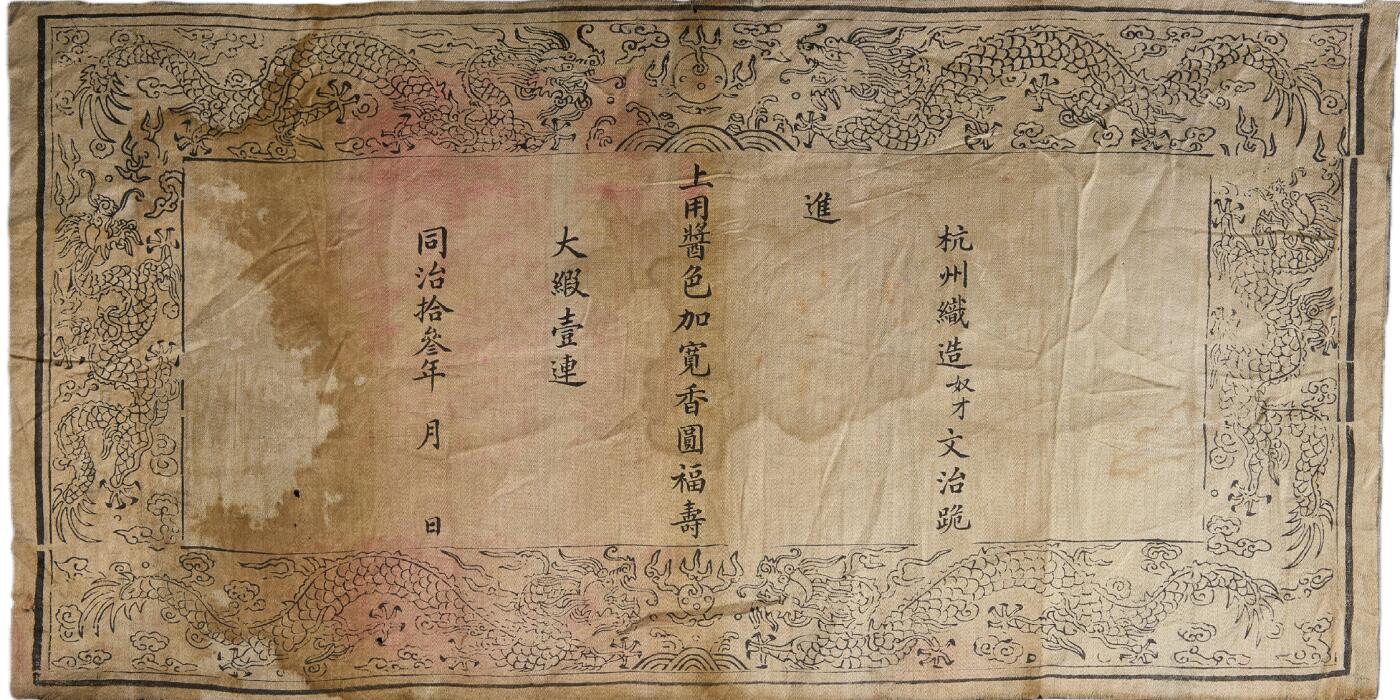 杭州織造奴才文治跪
進
上用醬色加寬香圓福壽
大緞壹連
同治拾叁年 月 日